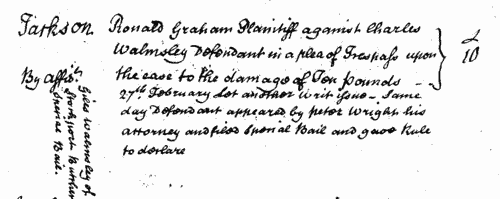 Jackson. Ronald Graham Plaintiff against Charles
Walmsley Defendant in a plea of Trespass upon
the case to the damage of Ten pounds
£
10
By affit.
27th February let another writ issue - Same
day Defendant appeared by Peter Wright his
attorney and filed special Bail and gave Rule
to declare
Giles Walmsley of
Stockport
Special Bail.